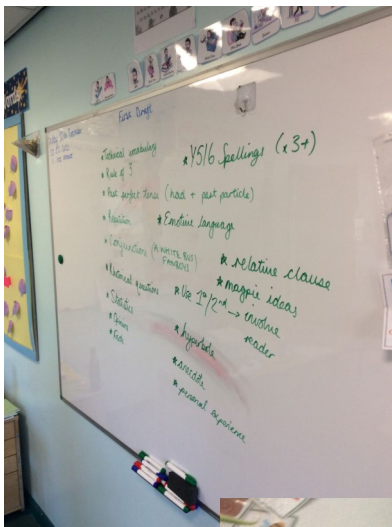 First Draft
* Technical vocabulary
* Rule of 3
* Past perfect tense (had + past particle)
* Repetition
* Conjunctions (A WHITE BUS / FANBOYS)
* Rhetorical questions
* Statistics
* Opinions
* Facts
* Y5/6 Spellings (x3+)
* Emotive language
* relative clause
* magpie ideas
* Use 1st/2nd → involve reader
* hyperbole
* anecdote
* personal experience